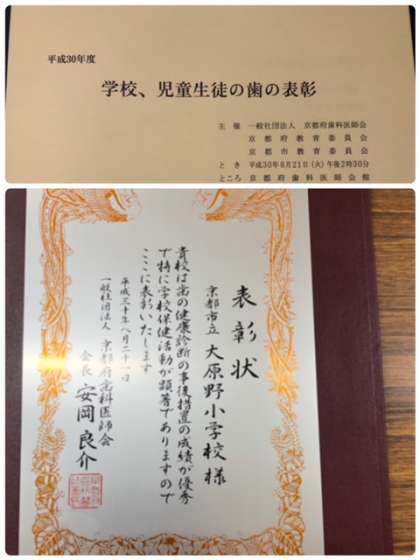 平成30年度
学校、児童生徒の歯の表彰
主 催 一般社団法人 京都府歯科医師会
京都府教育委員会
京都市教育委員会
とき 平成30年8月21日(火)午後2時30分
ところ 京都府歯科医師会館
表彰状
京都市立 大原野小学校様
貴校は歯の健康診断の事後措置の成績が優秀
で特に学校保健活動が顕著でありますので
ここに表彰いたします
平成三十年八月二十一日
一般社団法人 京都府歯科医師会
会長 安岡良介